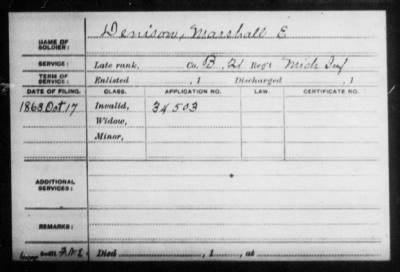 Denison, Marshall E.
NAME OF SOLDIER:
SERVICE: Late rank, Co. B, 2d Reg't Mich Inf
TERM OF SERVICE: Enlisted , 1 Discharged , 1
DATE OF FILING. CLASS. APPLICATION NO. LAW. CERTIFICATE NO.
1863 Oct. 17 Invalid, 34503
Widow,
Minor,
ADDITIONAL SERVICES:
REMARKS:
Died , 1 , at